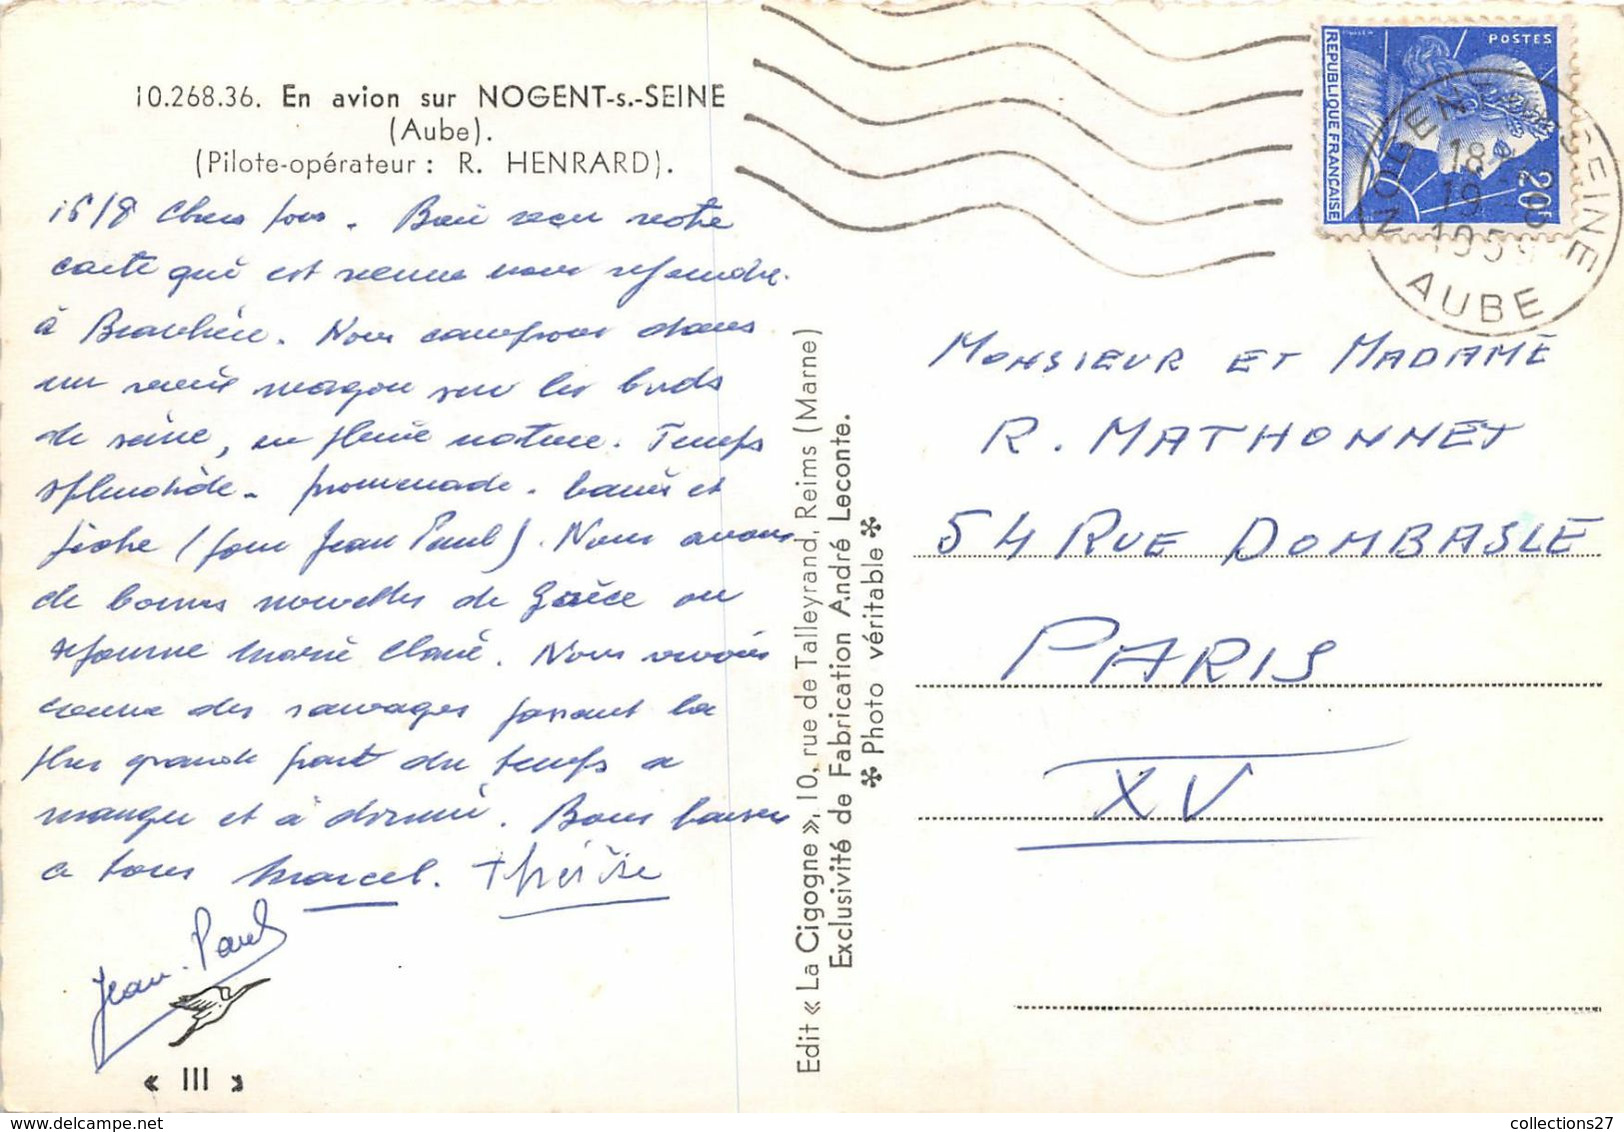 10.268.36. En avion sur NOGENT-s.-SEINE
(Aube).
(Pilote-opérateur : R. HENRARD).
Chers tous. Bien reçu votre
carte qui est venue nous rejoindre
à Beaulieu. Nous campons dans
un vieux wagon sur les bords
de seine, en pleine nature. Temps
splendide. promenade. bains et
pêche (pour Jean Paul). Nous avons
de bonnes nouvelles de Grèce ou
séjourne Marie Claire. Nous vivons
comme des sauvages passant la
plus grande part du temps a
manger et à dormir. Bons baisers
a tous Marcel. Thérèse
Jean-Paul
« III »
Edit « La Cigogne », 10, rue de Talleyrand, Reims (Marne)
Exclusivité de Fabrication André Leconte.
✻ Photo véritable ✻
POSTES
REPUBLIQUE FRANÇAISE
20F
NOGENT SUR SEINE
18
19
1959
AUBE
MONSIEUR ET MADAME
R. MATHONNET
54 RUE DOMBASLE
PARIS
XV
collections27